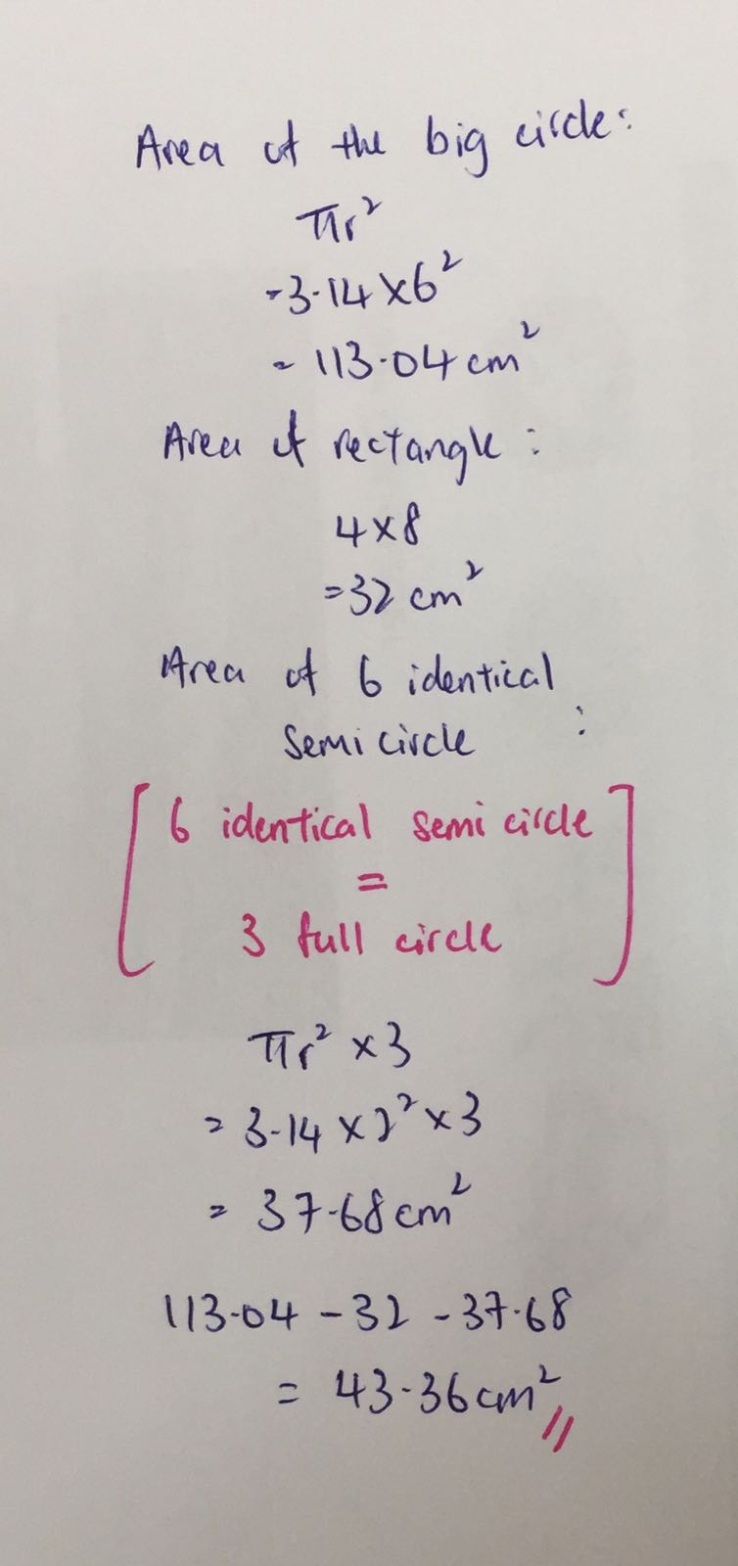 Area of the big circle:
πr²
=3.14×6²
= 113.04 cm²
Area of rectangle:
4×8
=32 cm²
Area of 6 identical
Semi circle :
[6 identical semi circle
=
3 full circle]
πr² ×3
= 3.14 ×2²×3
= 37.68 cm²
113.04 - 32 - 37.68
= 43.36 cm²//